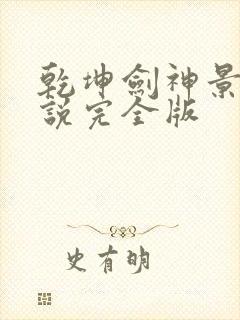 乾坤劍神景
說完全版
史有明